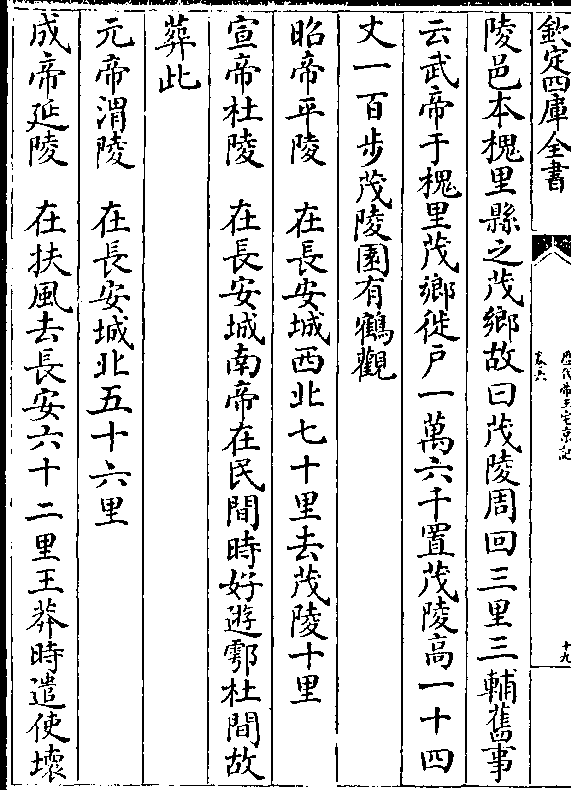 欽定四庫全書
歷代帝王宅京記
卷六
十九
陵邑本槐里縣之茂鄉故曰茂陵周回三里三輔舊事
云武帝于槐里茂鄉徙戶一萬六千置茂陵高一十四
丈一百步茂陵園有鶴觀
昭帝平陵　在長安城西北七十里去茂陵十里
宣帝杜陵　在長安城南帝在民間時好遊鄠杜間故
葬此
元帝渭陵　在長安城北五十六里
成帝延陵　在扶風去長安六十二里王莽時遣使壞